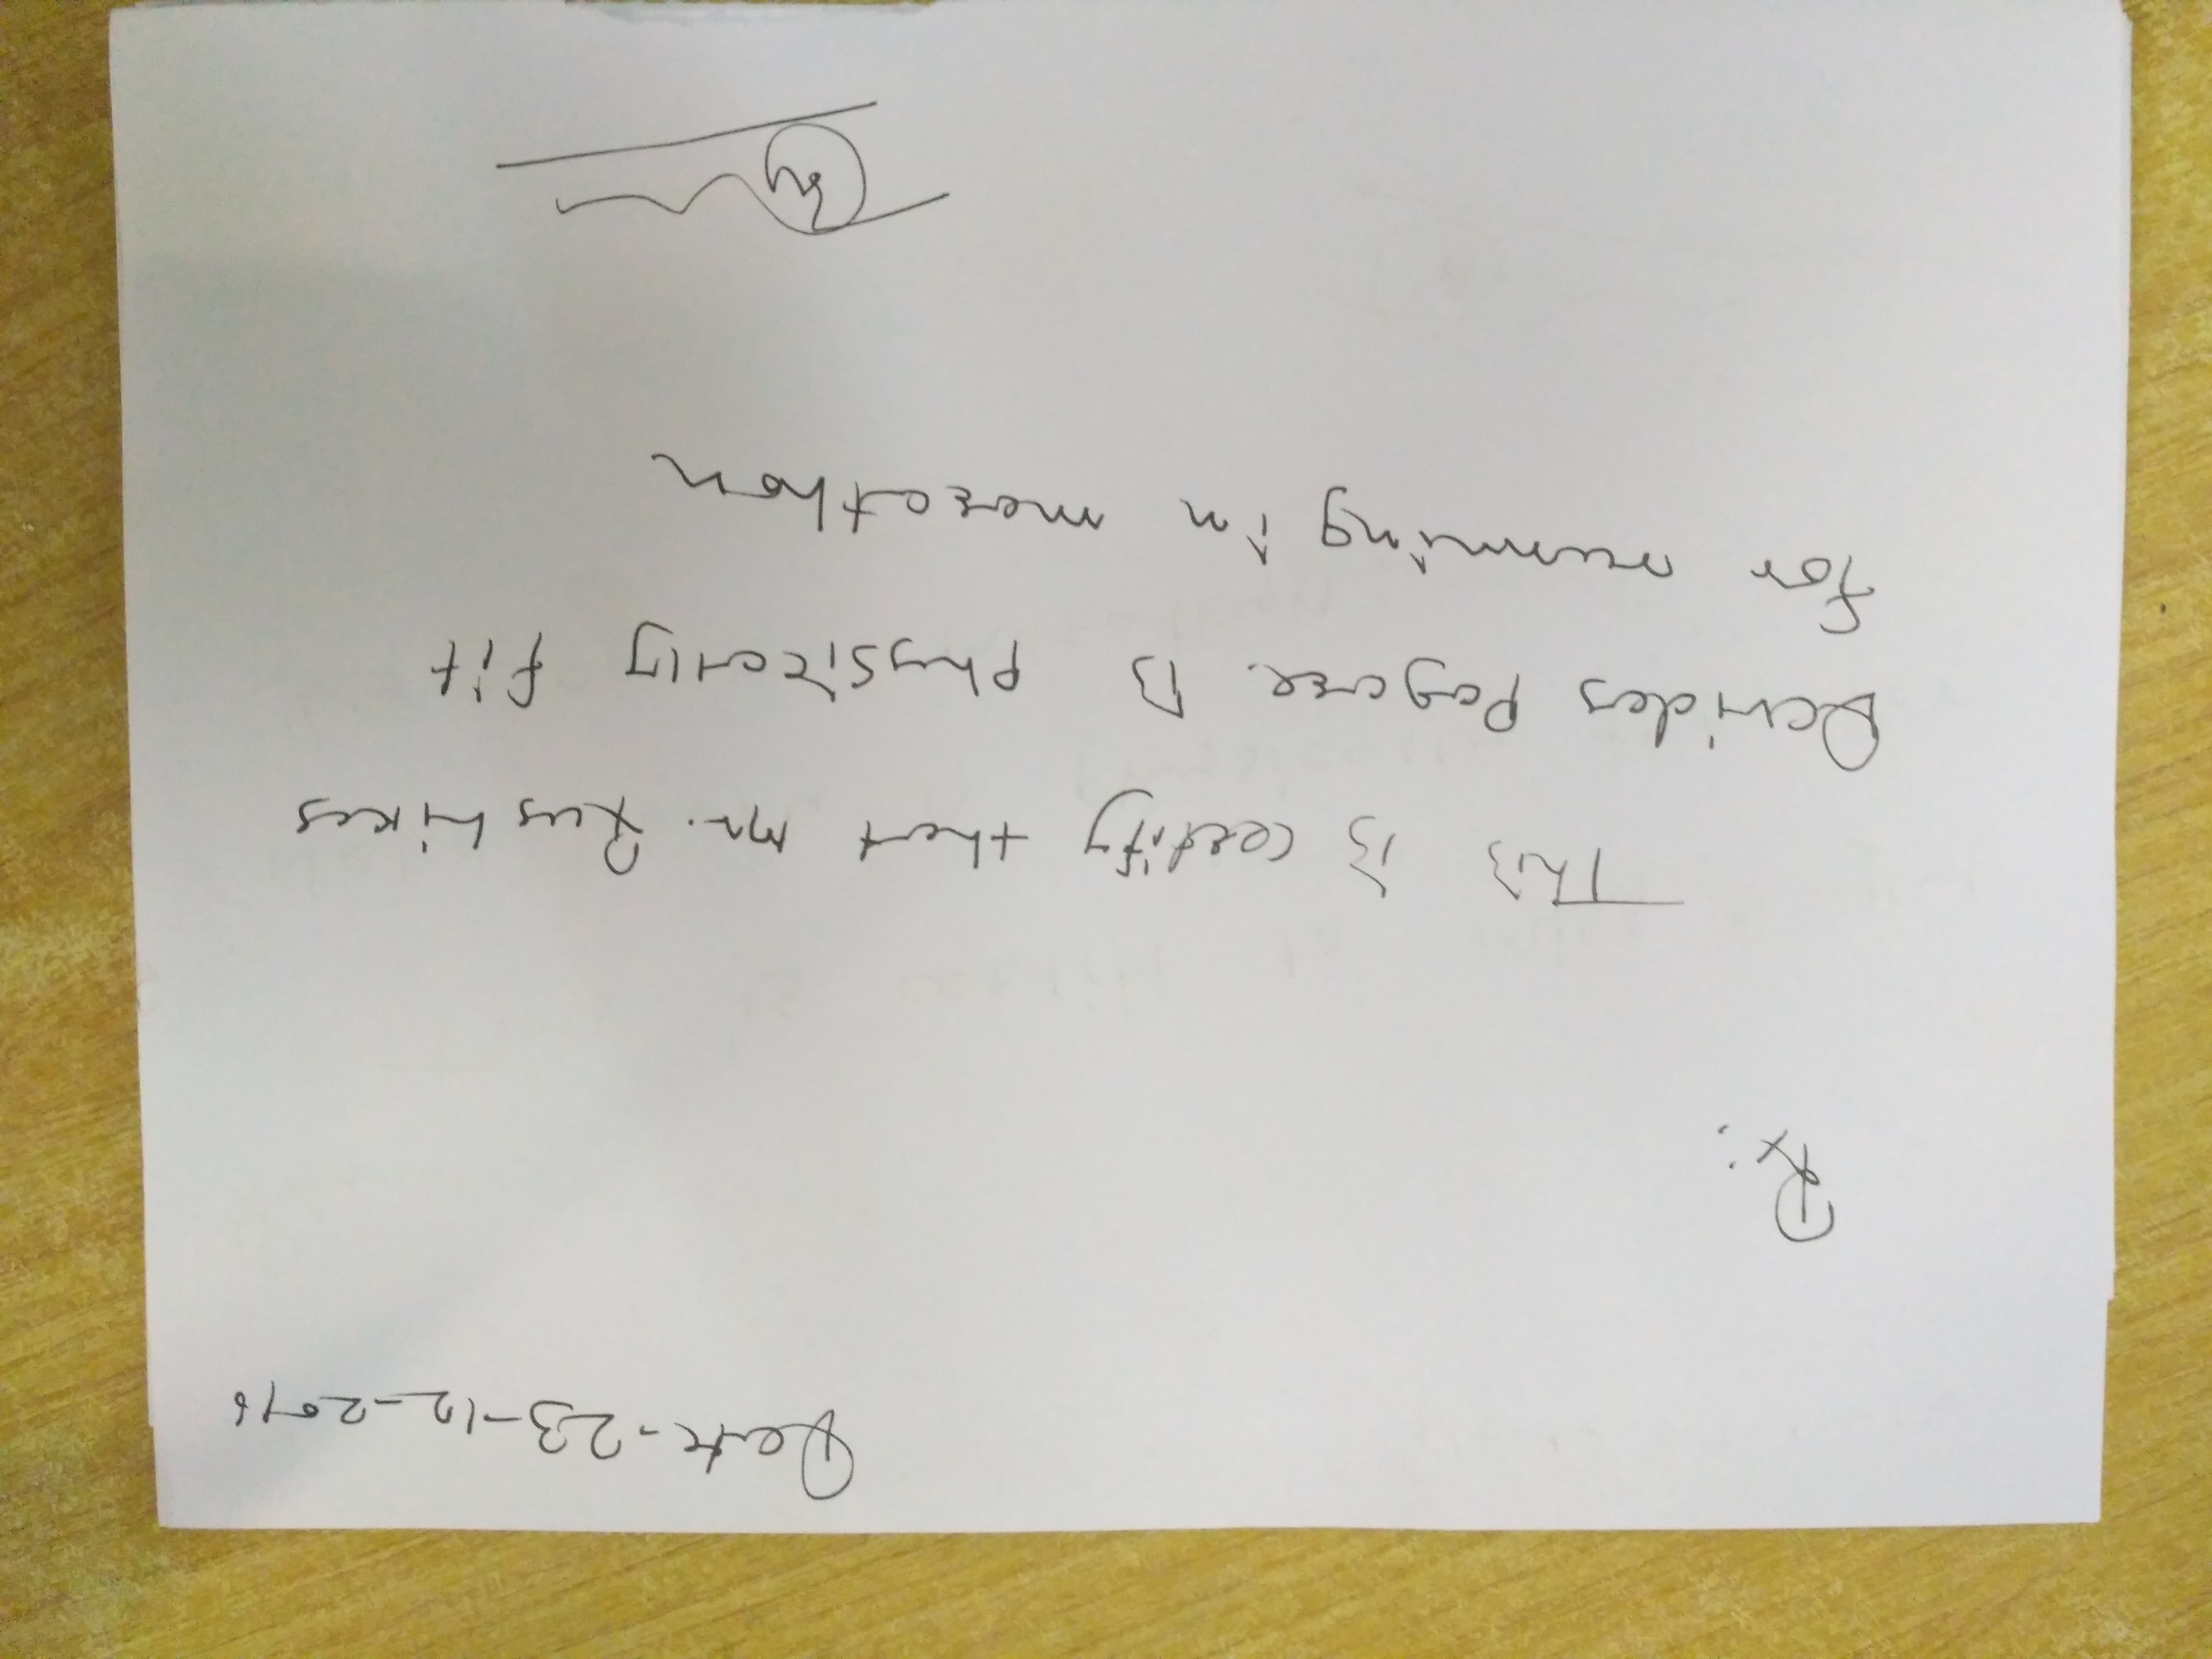 Date - 23-12-2016
Rx:
This is certify that Mr.
Devidas Pagare is physically fit
for running in marathon